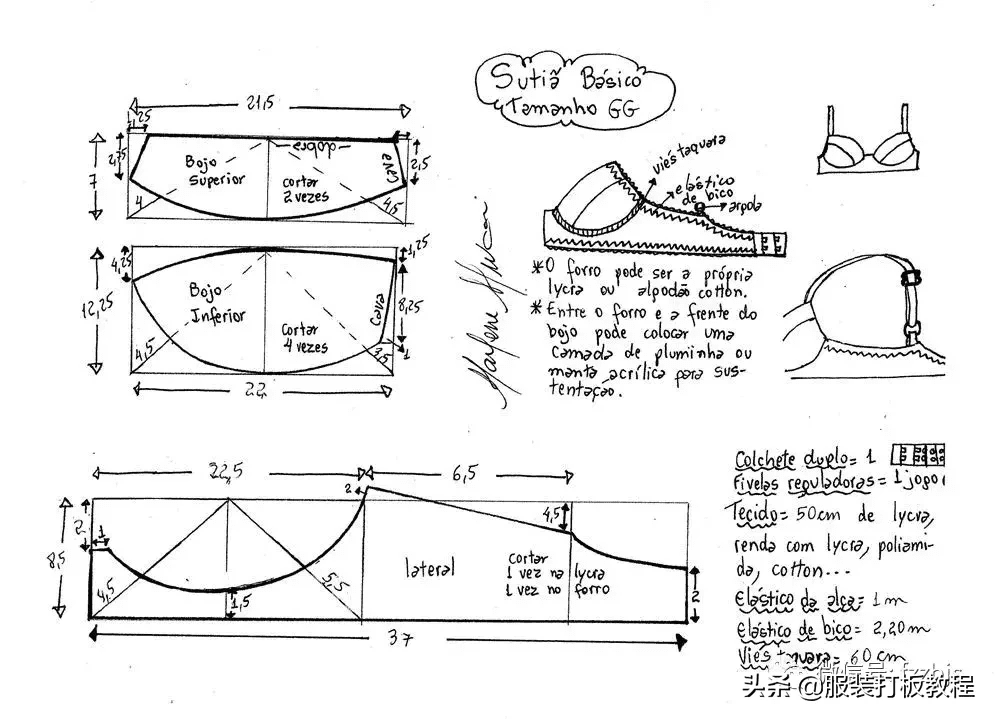 Sutiã Básico
Tamanho GG
21,5
1,25
2,75
7
Bojo
Superior
dobra
cortar
2 vezes
cava
2,5
4
4,5
4,25
12,25
Bojo
Inferior
cortar
4 vezes
cava
1,25
8,25
1
4,5
3,5
22
viés taquara
elástico
de bico
argola
* O forro pode ser a própria
lycra ou algodão cotton.
* Entre o forro e a frente do
bojo pode colocar uma
camada de pluminha ou
manta acrílica para sus-
tentação.
Marlene Mukai
22,5
6,5
2
2
1
8,5
4,5
1,5
5,5
lateral
4,5
cortar
1 vez na lycra
1 vez no forro
2
37
Colchete duplo= 1
Fivelas reguladoras= 1 jogo
Tecido= 50cm de lycra,
renda com lycra, poliami-
da, cotton...
Elástico da alça= 1m
Elástico de bico= 2,20m
Viés taquara= 60cm
微信号: fzzbjc
头条 @服装打板教程